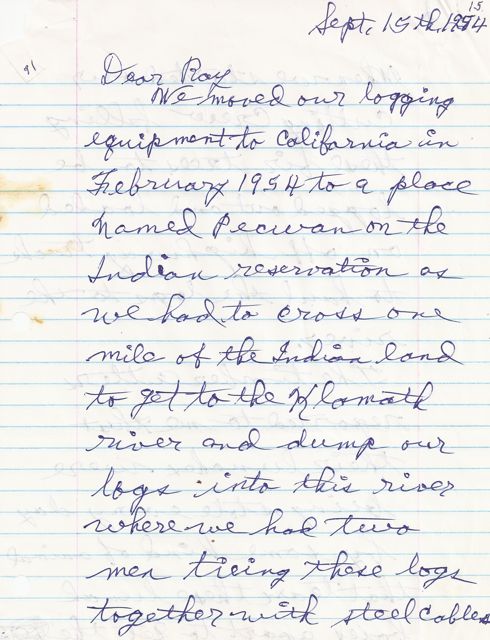 15
Sept. 15th, 1954
91
Dear Ray
We moved our logging
equipment to California in
February 1954 to a place
named Pecwan on the
Indian reservation as
we had to cross one
mile of the Indian land
to get to the Klamath
river and dump our
logs into this river
where we had two
men tieing these logs
together with steel cables